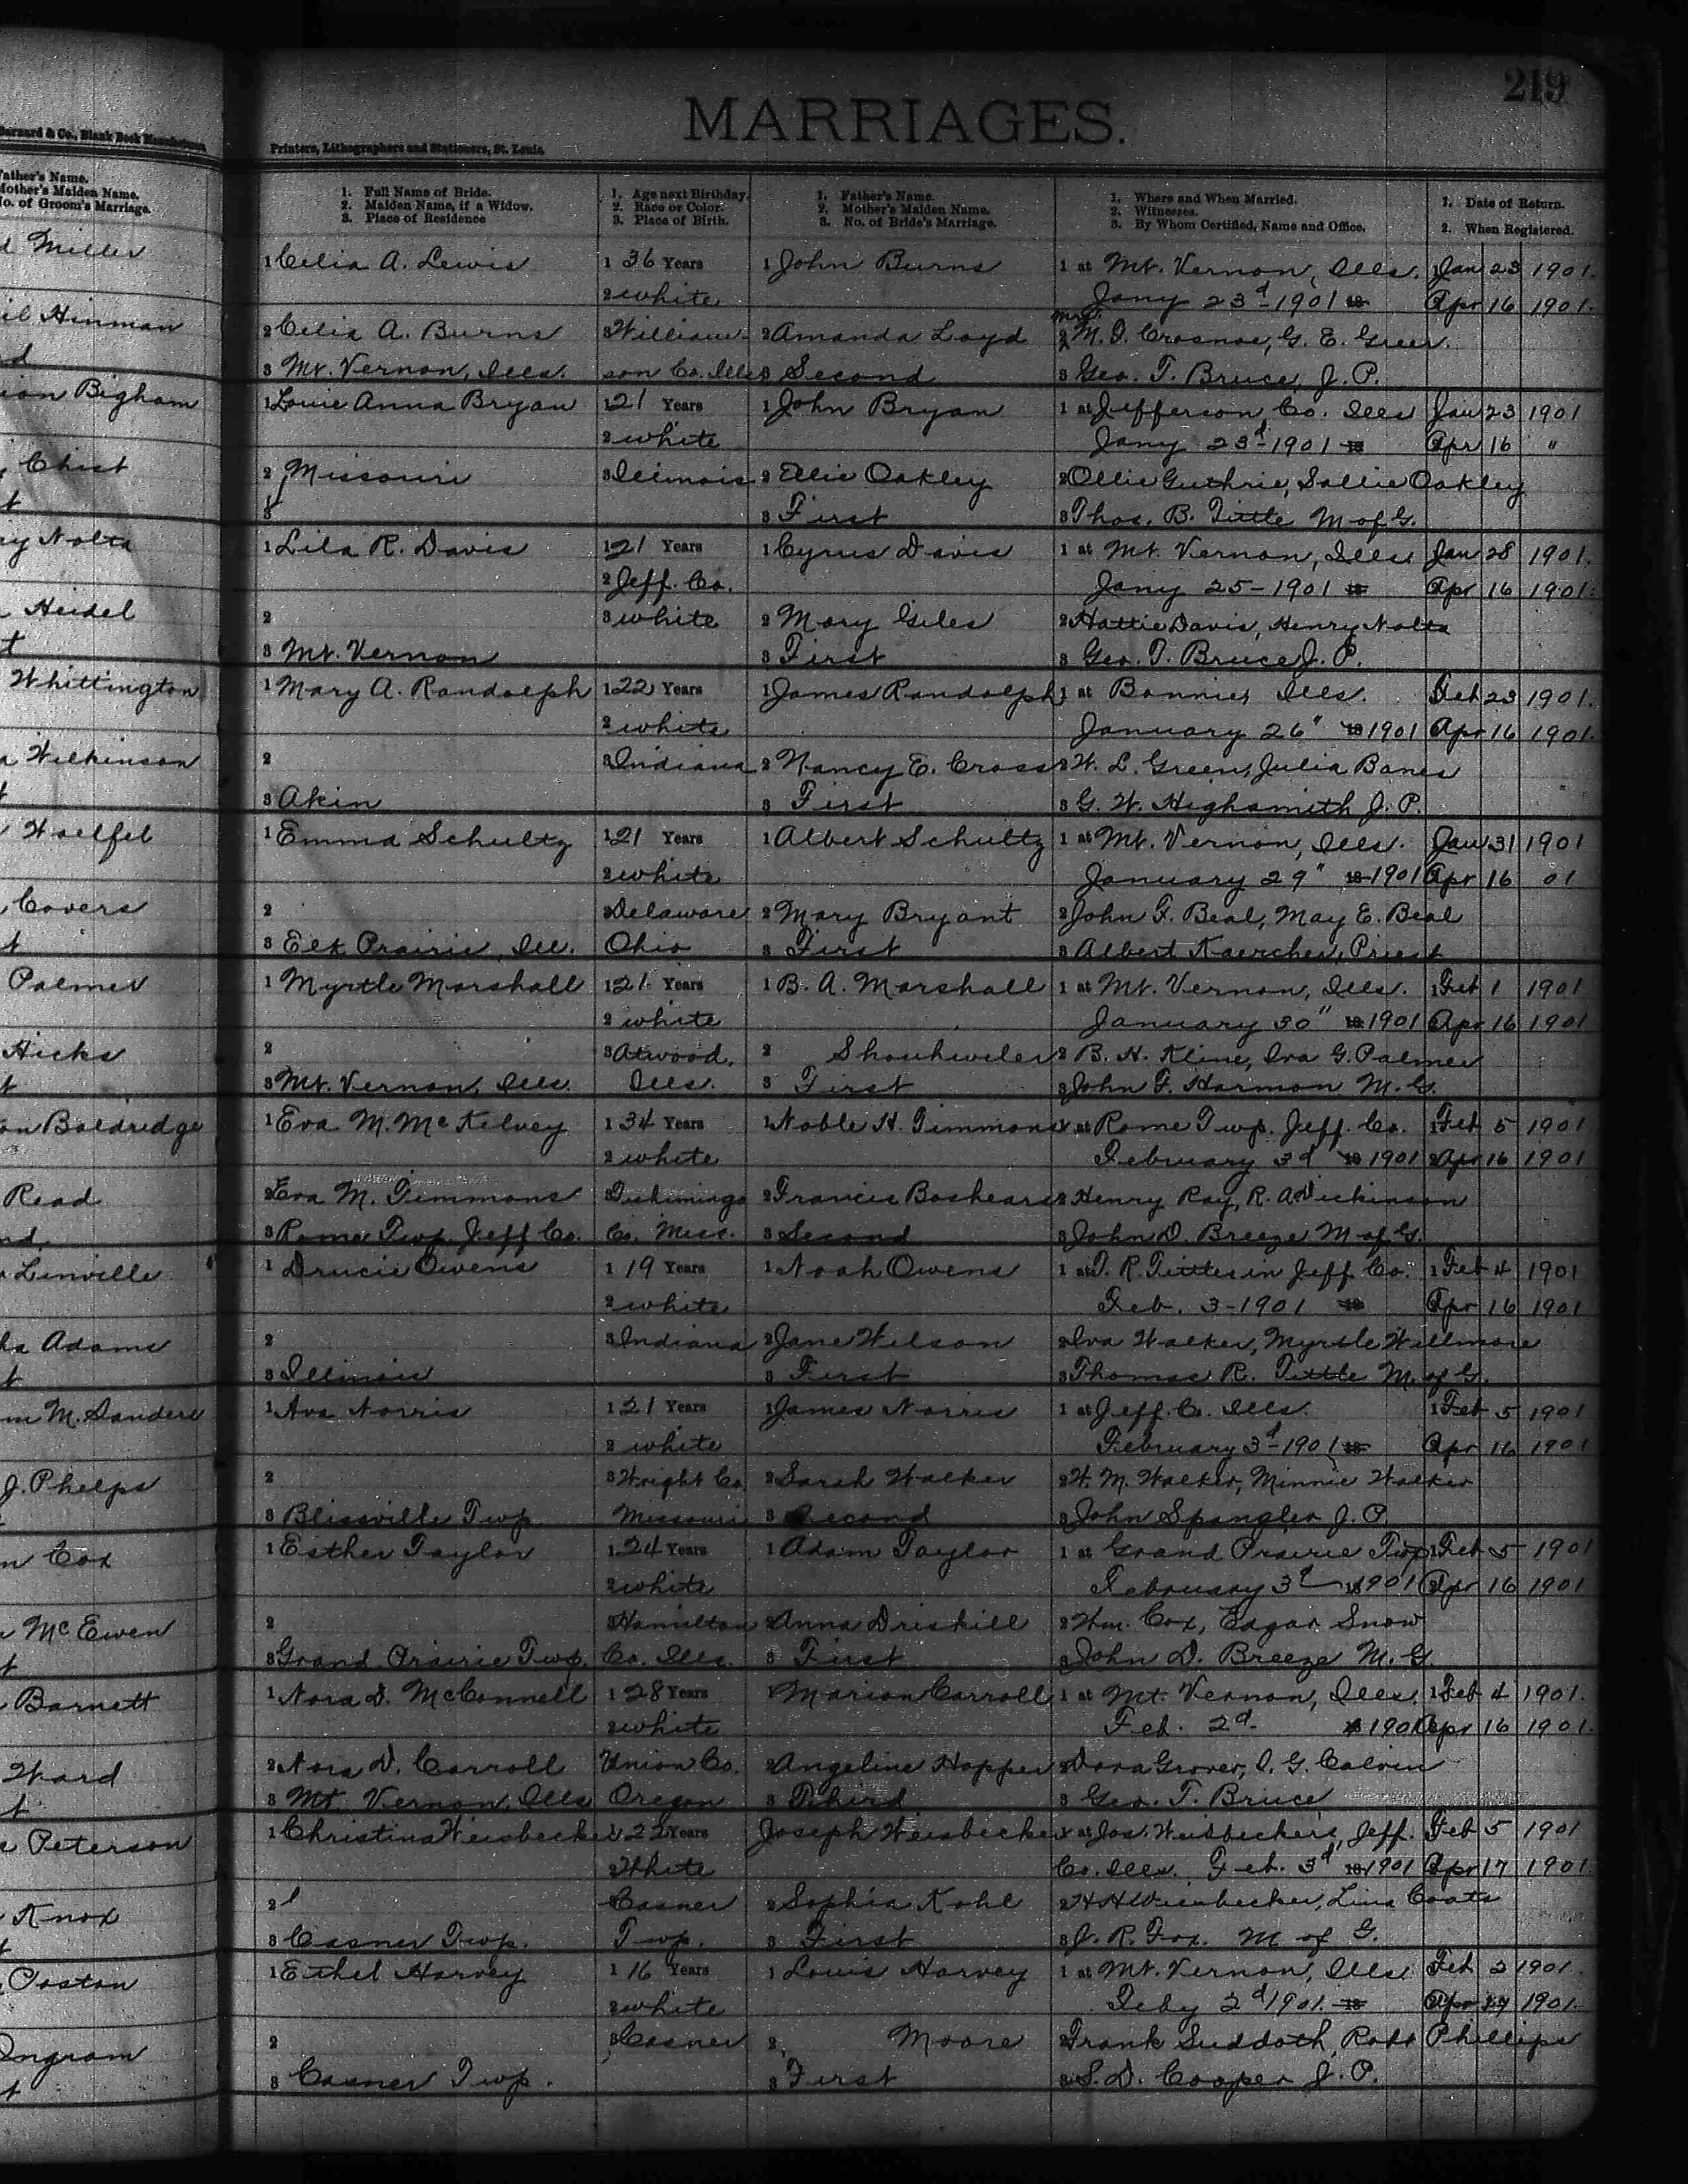 219
MARRIAGES.
Barnard & Co., Blank Book Manufacturers,
Printers, Lithographers and Stationers, St. Louis.
Father's Name.
Mother's Maiden Name.
No. of Groom's Marriage.
1. Full Name of Bride.
2. Maiden Name, if a Widow.
3. Place of Residence
1. Age next Birthday.
2. Race or Color.
3. Place of Birth.
1. Father's Name.
2. Mother's Maiden Name.
3. No. of Bride's Marriage.
1. Where and When Married.
2. Witnesses.
3. By Whom Certified, Name and Office.
1. Date of Return.
2. When Registered.
d Miller
1 Celia A. Lewis 1 36 Years 1 John Burns 1 at Mt. Vernon, Ills. 1 Jan 23 1901.
2 white Jany 23d-1901 18 Apr 16 1901.
il Hinman
2 Celia A. Burns 3 William- 2 Amanda Loyd 2 Mrs. M. I. Crosnoe, G. E. Green.
d
3 Mt. Vernon, Ills. son Co. Ills 3 Second 3 Geo. T. Bruce, J. P.
ion Bigham
1 Louie Anna Bryan 1 21 Years 1 John Bryan 1 at Jefferson Co. Ills Jan 23 1901
2 white Jany 23d-1901 18 Apr 16 "
Chist
2 Missouri 3 Illinois 2 Ellie Oakley 2 Ollie Guthrie, Sallie Oakley
t
3 3 First 3 Thos. B. Tittle M of G.
ry Nolta
1 Lila R. Davis 1 21 Years 1 Cyrus Davis 1 at Mt. Vernon, Ills. Jan 28 1901.
2 Jeff. Co. Jany 25-1901 18 Apr 16 1901.
Heidel
2 3 white 2 Mary Giles 2 Hattie Davis, Henry Nolta
t
3 Mt. Vernon 3 First 3 Geo. T. Bruce J. P.
Whittington
1 Mary A. Randolph 1 22 Years 1 James Randolph 1 at Bonnie, Ills. Feb 23 1901.
2 white January 26" 18 1901 Apr 16 1901.
a Wilkinson
2 3 Indiana 2 Nancy E. Cross 2 W. L. Green, Julia Banes
t
3 Akin 3 First 3 G. W. Highsmith J. P.
Woelfel
1 Emma Schultz 1 21 Years 1 Albert Schultz 1 at Mt. Vernon, Ills. Jan 31 1901
2 white January 29" 18 1901 Apr 16 01
Covers
2 3 Delaware 2 Mary Bryant 2 John F. Beal, May E. Beal
t
3 Elk Prairie, Ill. Ohio 3 First 3 Albert Kaercher, Priest
Palmer
1 Myrtle Marshall 1 21 Years 1 B. A. Marshall 1 at Mt. Vernon, Ills. 1 Feb 1 1901
2 white January 30" 18 1901 Apr 16 1901
Hicks
2 3 Atwood, 2 2 B. H. Kline, Iva G. Palmer
t
3 Mt. Vernon, Ills. Ills. 3 First 3 John F. Harmon M. G.
on Boldridge
1 Eva M. McKelvey 1 34 Years 1 Noble H. Timmons 1 at Rome Twp. Jeff. Co. 1 Feb 5 1901
2 white February 3d 18 1901 2 Apr 16 1901
Read
2 Eva M. Timmons 3 Tishimingo 2 Francis Boshears 2 Henry Ray, R. A. Dickinson
nd
3 Rome Twp. Jeff Co. Co. Miss. 3 Second 3 John D. Breeze M of G.
Linville
1 Drucie Owens 1 19 Years 1 Noah Owens 1 at T. R. Tittles in Jeff. Co. 1 Feb 4 1901
2 white Feb. 3-1901 18 Apr 16 1901
ha Adams
2 3 Indiana 2 Jane Wilson 2 Iva Walker, Myrtle Willmore
t
3 Illinois 3 First 3 Thomas R. Tittle M. of G.
m M. Sanders
1 Ava Norris 1 21 Years 1 James Norris 1 at Jeff. Co. Ills. 1 Feb 5 1901
2 white February 3d-1901 18 Apr 16 1901
J. Phelps
2 3 Wright Co. 2 Sarah Walker 2 W. M. Walker, Minnie Walker
3 Blissville Twp. Missouri 3 Second 3 John Spangler J. P.
n Cox
1 Esther Taylor 1 24 Years 1 Adam Taylor 1 at Grand Prairie Twp 1 Feb 5 1901
2 white February 3d 18 1901 2 Apr 16 1901
McEwen
2 3 Hamilton 2 Anna Driskill 2 Wm. Cox, Edgar Snow
t
3 Grand Prairie Twp. Co. Ills. 3 First 3 John D. Breeze M. G.
Barnett
1 Nora D. McConnell 1 28 Years 1 Marion Carroll 1 at Mt. Vernon, Ills. 1 Feb 4 1901.
2 white Feb. 2d 18 1901 Apr 16 1901.
Ward
2 Nora D. Carroll Union Co. 2 Angeline Hopper 2 Dora Grover, I. G. Calvin
t
3 Mt. Vernon, Ills Oregon 3 Third 3 Geo. T. Bruce
Peterson
1 Christina Weisbecker 1 22 Years Joseph Weisbecker 1 at Jos. Weisbecker's, Jeff. Feb 5 1901
2 White Co. Ills. Feb. 3d 18 1901 Apr 17 1901.
Knox
2 Casner 2 Sophia Kohl 2 H H Weisbecker, Lina Coats
t
3 Casner Twp. Twp. 3 First 3 J. R. Fox. M of G.
Poston
1 Ethel Harvey 1 16 Years 1 Louis Harvey 1 at Mt. Vernon, Ills. Feb 2 1901.
2 white Feby 2d 1901. 18 Apr 17 1901.
Ingram
2 3 Casner 2 Moore 2 Frank Suddoth, Robt Phillips
t
3 Casner Twp. 3 First 3 S. D. Cooper J. P.